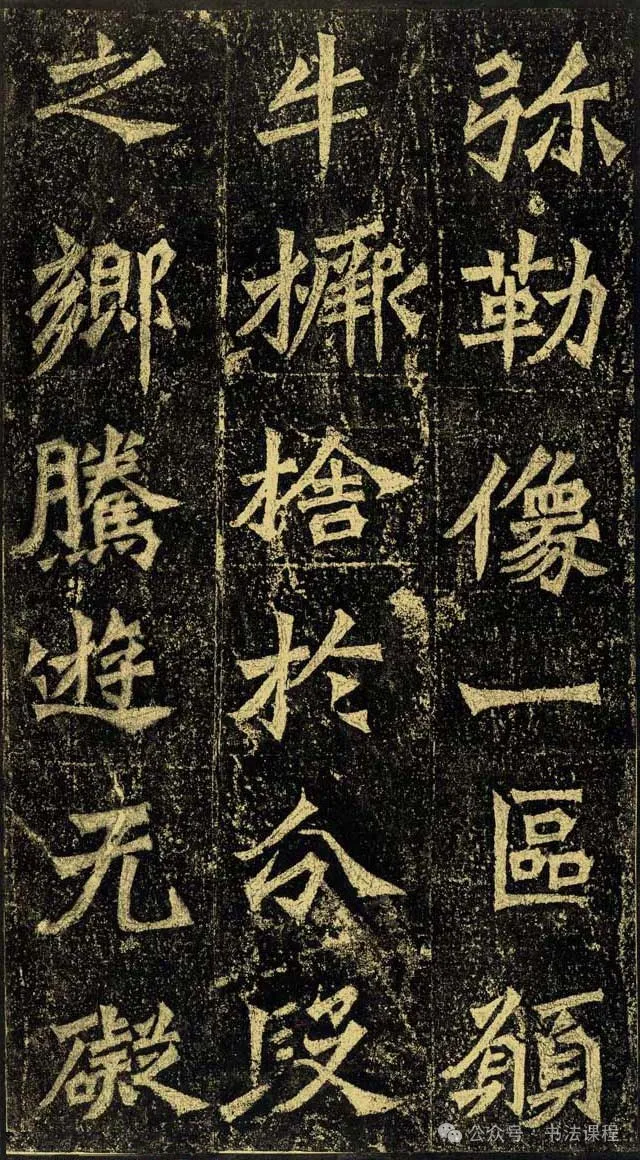 弥勒像一區願
牛橛捨於分段
之鄉騰遊无礙
公众号·书法课程